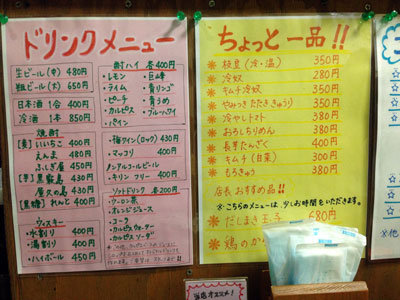 ドリンクメニュー
生ビール(中) 480円
瓶ビール(大) 650円
日本酒 1合 400円
冷酒 1本 850円
焼酎
[麦] いいちこ 400円
えんま 480円
ふしぎ屋 450円
[芋] 黒霧島 430円
屋久の島 430円
[黒糖] れんと 400円
ウィスキー
・水割り 400円
・湯割り 400円
・ハイボール 450円
酎ハイ 各400円
・レモン
・ライム
・ピーチ
・カルピス
・パイン
・巨峰
・青リンゴ
・青うめ
・ブルーハワイ
・梅ワイン(ロック) 430円
・マッコリ 400円
ノンアルコールビール
・キリン フリー 400円
ソフトドリンク 各200円
・ウーロン茶
・オレンジジュース
・コーラ
・カルピスウォーター
・カルピスソーダ
ちょっと一品!!
枝豆(冷・温) 350円
冷奴 280円
キムチ冷奴 350円
やみつきたたききゅうり 350円
冷やしトマト 380円
おろしちりめん 380円
長芋たんざく 400円
キムチ(白菜) 300円
もろきゅう 380円
店長おすすめ品!!
※こちらのメニューは、少しお時間をいただきます。
だしまき玉子 680円
鶏のから